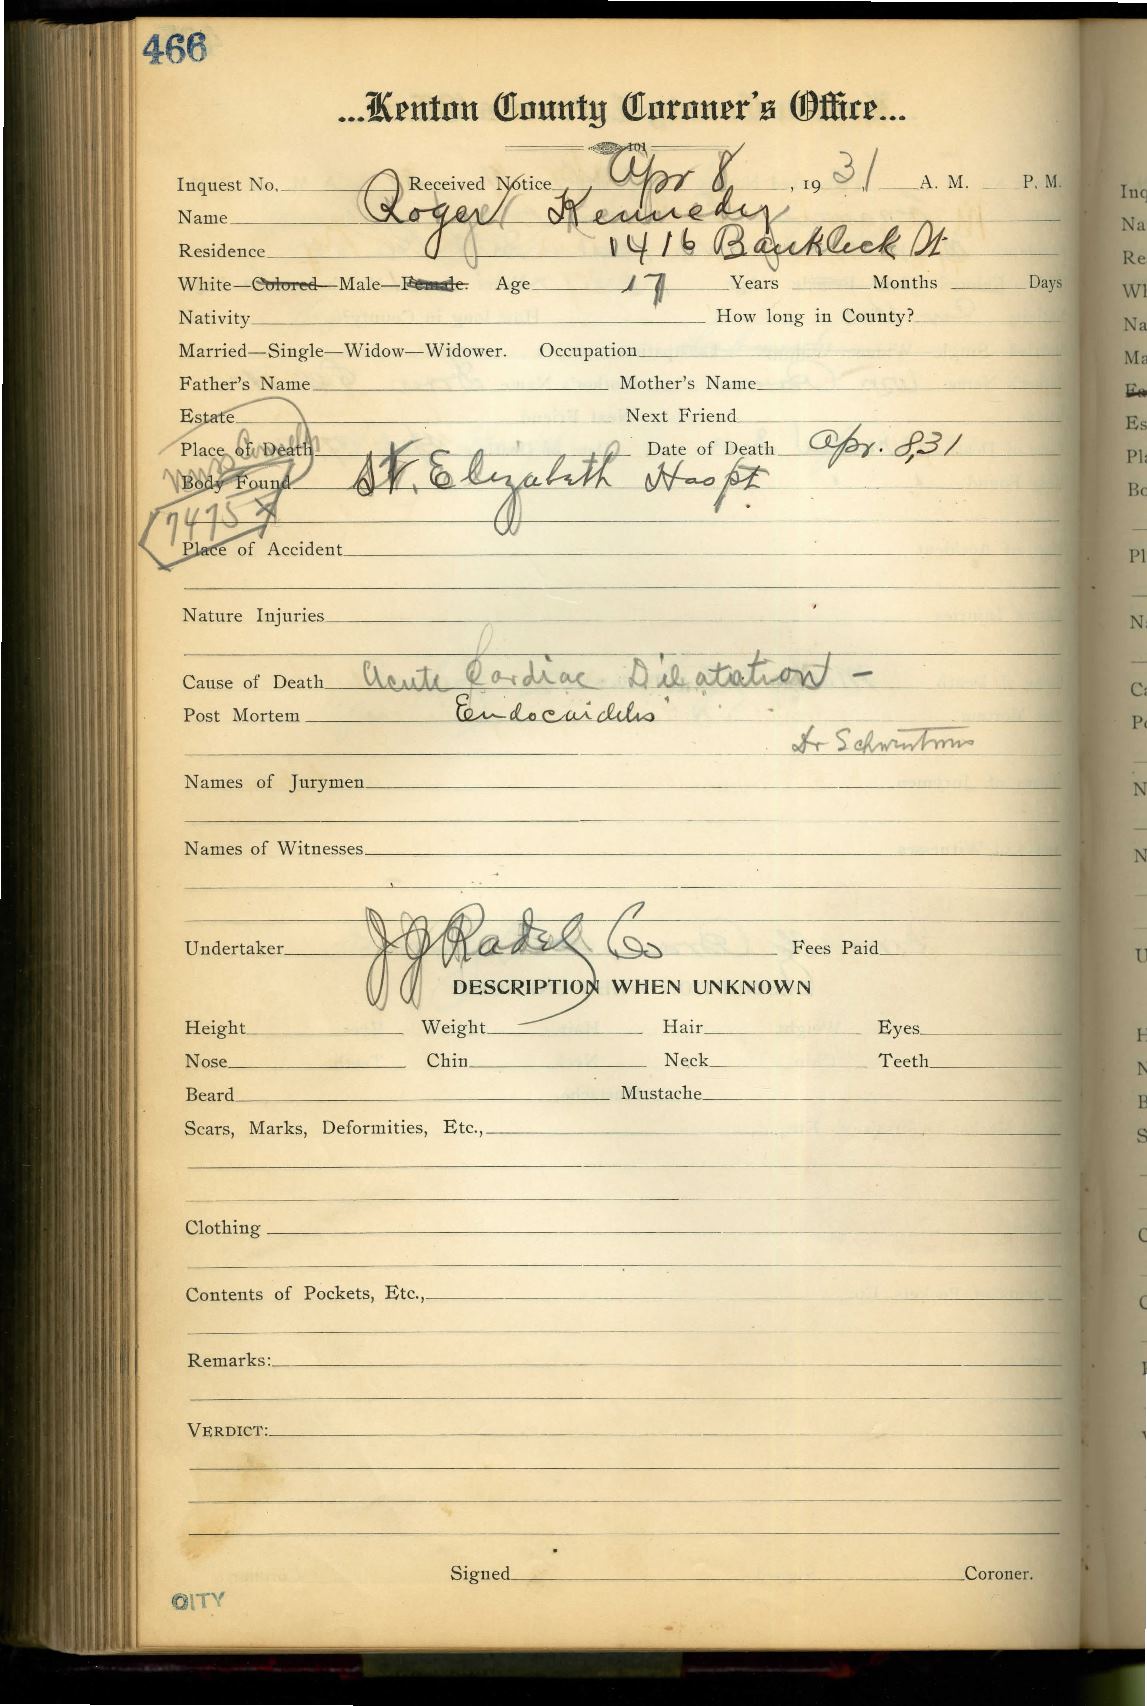 466
...Kenton County Coroner's Office...
101
Inquest No. Received Notice Apr 8, 1931 A. M. P. M.
Name Roger Kennedy
Residence 1416 Banklick St
White—Colored—Male—Female. Age 17 Years Months Days
Nativity How long in County?
Married—Single—Widow—Widower. Occupation
Father's Name Mother's Name
Estate Next Friend
Place of Death Date of Death Apr. 8, 31
Body Found St. Elizabeth Hospt.
7475
Place of Accident
Nature Injuries
Cause of Death Acute Cardiac Dilatation —
Post Mortem Endocarditis
Dr
Names of Jurymen
Names of Witnesses
Undertaker J J Radel Co Fees Paid
DESCRIPTION WHEN UNKNOWN
Height Weight Hair Eyes
Nose Chin Neck Teeth
Beard Mustache
Scars, Marks, Deformities, Etc.,
Clothing
Contents of Pockets, Etc.,
Remarks:
VERDICT:
Signed Coroner.
CITY